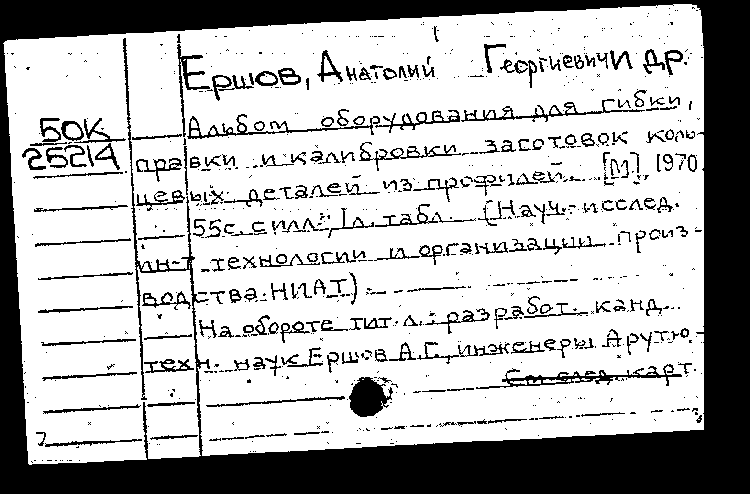 Ершов, Анатолий Георгиевич и др.
50К
25214
Альбом оборудования для гибки,
правки и калибровки заготовок коль-
цевых деталей из профилей. [М], 1970.
55с. с илл.; 1л. табл. (Науч.-исслед.
ин-т технологии и организации произ-
водства НИАТ).
На обороте тит. л.: разработ. канд.
техн. наук Ершов А.Г., инженеры Арутю-
См след. карт.